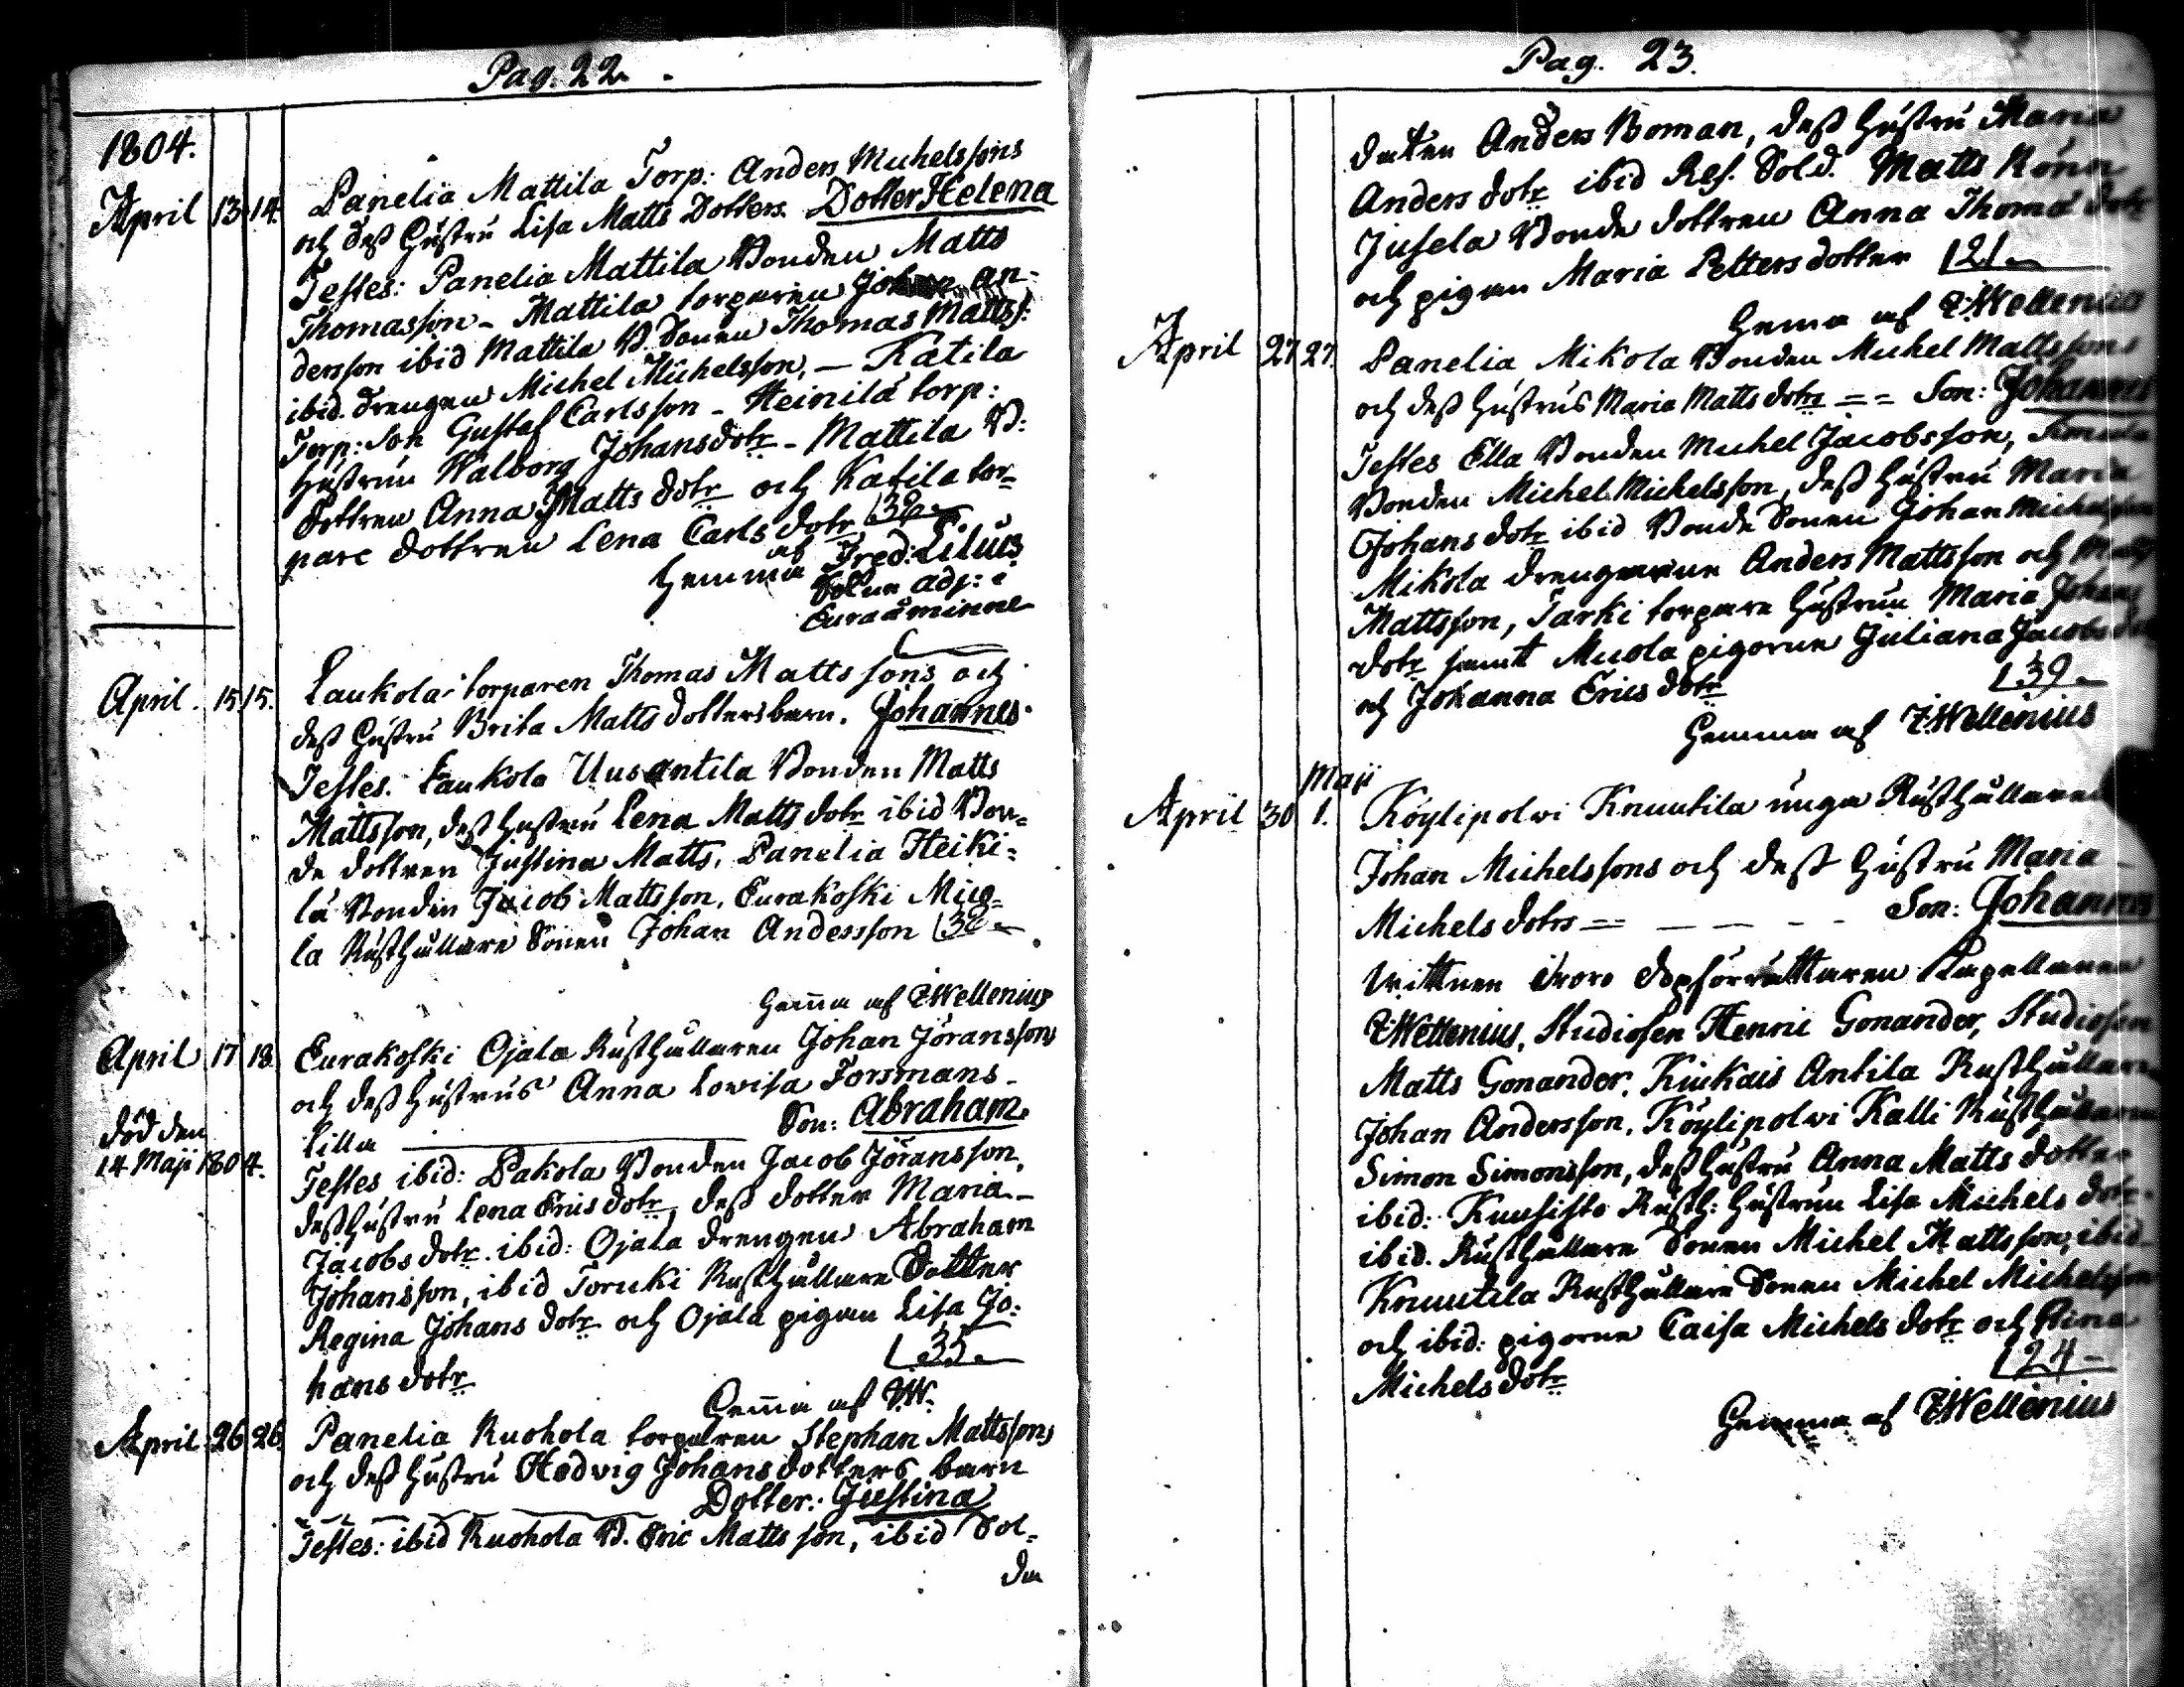 Pag. 22.
1804.
April 13. 14. Panelia Mattila Torp: Anders Michelssons
och dess Hustru Lisa Matts Dotters. Dotter Helena
Testes: Panelia Mattila Bonden Matts
Thomasson - Mattila torparen Johan An-
dersson ibid Mattila B. Sonen Thomas Mattss:
ibid. drengen Michel Michelsson, - Katila
Torp: Son Gustaf Carlsson - Heinilä torp:
hustrun Walborg Johansdotr - Mattila B:
dottren Anna Matts dotr och Katila tor-
pare dottren Lena Carls dotr 32.
hemma af Fred: Lilius
Socne adj: i
Euraåminne
April. 15. 15. Laukola torparen Thomas Mattssons och
dess Hustru Brita Matts dotters barn. Johannes.
Testes. Laukola Uusantila Bonden Matts
Mattsson, dess hustru Lena Matts dotr ibid Bon-
de dottren Justina Matts, Panelia Heiki-
lä Bonden Jacob Mattsson, Eurakoski Mico-
la Rusthållare Sonen Johan Andersson
Hemma af ZWellenius
April 17 18. Eurakoski Ojala Rusthållaren Johan Jöranssons
och dess Hustrus Anna Lovisa Forsmans
lilla Son: Abraham.
död den
14 Maji 1804.
Testes ibid: Pakola Bonden Jacob Jöransson,
dess Hustru Lena Erics dotr, dess dotter Maria
Jacobs dotr. ibid: Ojala drengen Abraham
Johansson, ibid Torucki Rusthållare Dotter
Regina Johans dotr och Ojala pigan Lisa Jo-
hans dotr 35.
Hemma af ZW.
April 26 26. Panelia Ruohola torparen Stephan Mattssons
och dess Hustru Hedvig Johansdotters barn
Dotter: Justina
Testes: ibid Ruohola B. Eric Mattsson, ibid Sol-
da
Pag. 23.
daten Anders Boman, dess Hustru Maria
Anders dotr ibid Res. Sold. Matts Rönn
Jusela Bonde dottren Anna Thomæ dotr
och pigan Maria Petters dotter 21.
Hema af ZWellenius
April 27 27. Panelia Mikola Bonden Michel Mattssons
och dess Hustrus Maria Matts dotrs == Son: Johannes
Testes Ella Bonden Michel Jacobsson,
Bonden Michel Michelsson, dess Hustru Maria
Johans dotr ibid Bonde Sonen Johan Michelsson
Mikola drengarne Anders Mattsson och Matts
Mattsson, Tarki torpare Hustrun Maria Johans
dotr samt Micola pigorne Juliana Jacobs dotr
och Johanna Erics dotr 39.
Hemma af ZWellenius
Maji
April 30 1. Köylipolvi Knuutila unga Rusthållaren
Johan Michelssons och dess Hustru Maria
Michels dotrs == - - - - Son: Johannes
Vittnen voro dopförrättaren Kapellanen
ZWellenius, Studiosen Henric Gonander, Studiosen
Matts Gonander, Kiukais Antila Rusthållaren
Johan Andersson, Köylipolvi Kalli Rusthållaren
Simon Simonsson, dess Hustru Anna Matts dotter
ibid: Kuusisto Rusth: Hustrun Lisa Michels dotr.
ibid. Rusthållare Sonen Michel Mattsson, ibid
Knuutila Rusthållare Sonen Michel Michelsson
och ibid: pigorne Caisa Michels dotr och Stina
Michels dotr 24-
Hemma af ZWellenius